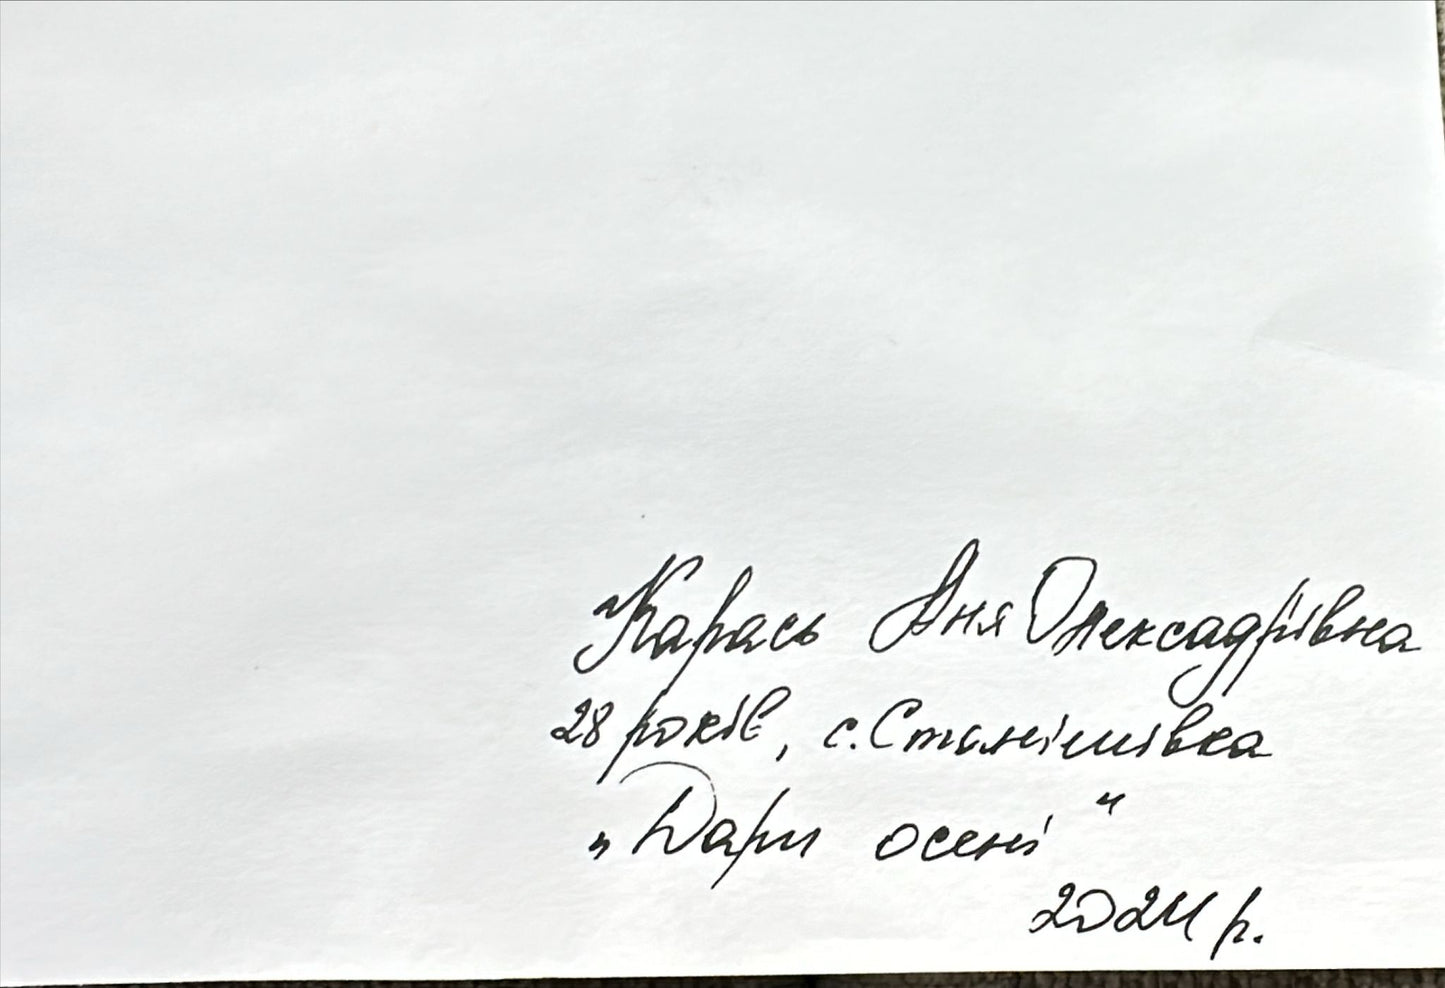 Карась Аня Олексадрівна
28 років, с. Станішівка
„Дари осені“
2024 р.